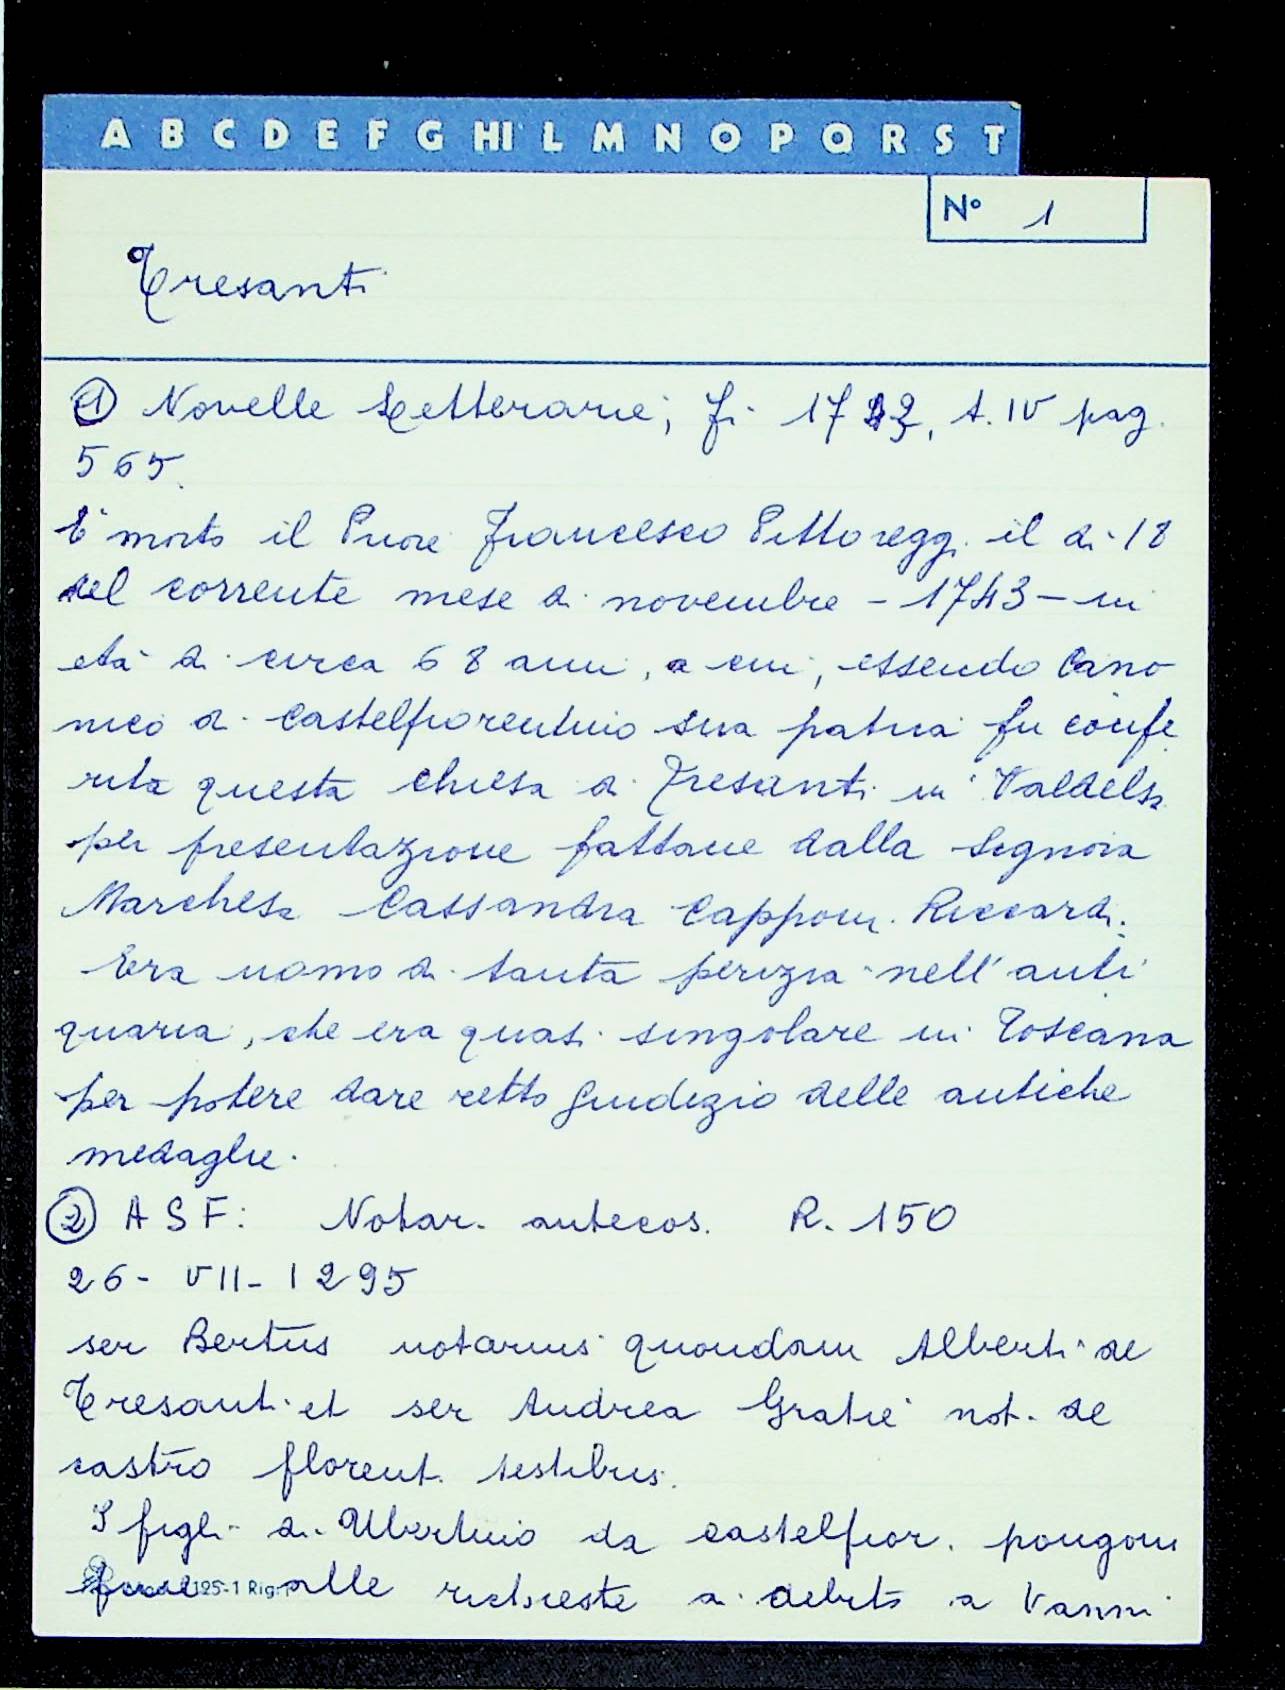 A B C D E F G HI L M N O P Q R S T
N° 1
Tresanti
① Novelle Letterarie; Fi 1743, t. IV pag.
565.
E' morto il Priore Francesco Pittoreggi il di 18
del corrente mese di novembre - 1743 - in
età di circa 68 anni, a cui, essendo Cano
nico di Castelfiorentino sua patria fu confe
rita questa chiesa di Tresanti in Valdelsa
per presentazione fattane dalla Signora
Marchesa Cassandra Capponi Riccardi.
Era uomo di tanta perizia nell'anti
quaria, che era quasi singolare in Toscana
per potere dare retto giudizio delle antiche
medaglie.
② A S F: Notar. antecos. R. 150
26 - VII - 1295
ser Bertus notarius quondam Alberti de
Tresanti et ser Andrea Gratie not. de
castro florent. testibus.
I figli di Ubertino da castelfior. pongono
fine alle richieste di debito a Vanni
125-1 Rig.